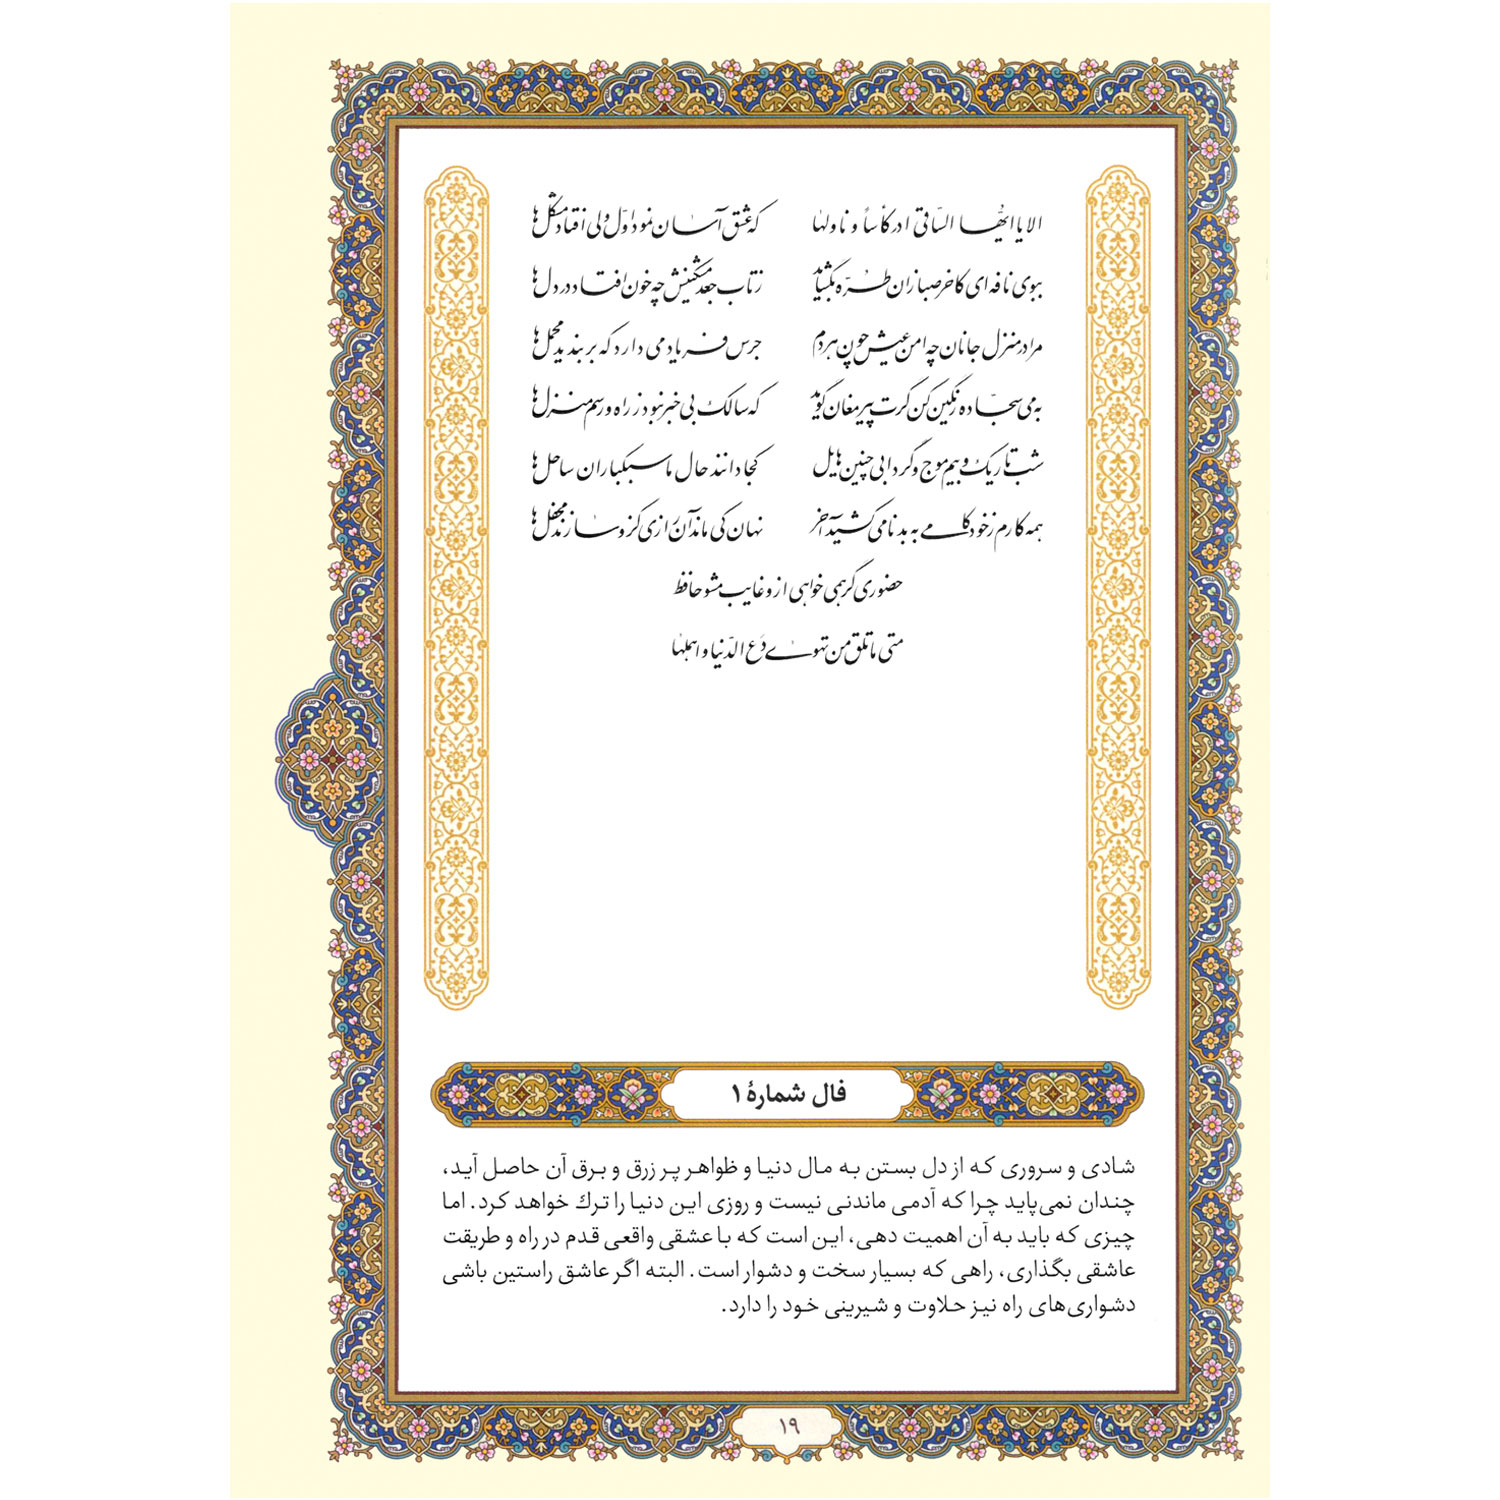 الا یا ایّها السّاقی ادر کأساً و ناولها که عشق آسان نمود اوّل ولی افتاد مشکل‌ها
ببوی نافه‌ای کاخر صبا زان طرّه بگشاید ز تاب جعد مشکینش چه خون افتاد در دل‌ها
مرا در منزل جانان چه امن عیش چون هر دم جرس فریاد می دارد که بر بندید محمل‌ها
به می سجّاده رنگین کن گرت پیر مغان گوید که سالک بی خبر نبود ز راه و رسم منزل‌ها
شب تاریک و بیم موج و گردابی چنین هایل کجا دانند حال ما سبکباران ساحل‌ها
همه کارم ز خود کامی به بدنامی کشید آخر نهان کی ماند آن رازی کزو سازند محفل‌ها
حضوری گر همی خواهی ازو غایب مشو حافظ
متی ما تلق من تهوی دَع الدّنیا و اهملها
فال شمارۀ ۱
شادی و سروری که از دل بستن به مال دنیا و ظواهر پر زرق و برق آن حاصل آید،
چندان نمی‌پاید چرا که آدمی ماندنی نیست و روزی این دنیا را ترك خواهد کرد. اما
چیزی که باید به آن اهمیت دهی، این است که با عشقی واقعی قدم در راه و طریقت
عاشقی بگذاری، راهی که بسیار سخت و دشوار است. البته اگر عاشق راستین باشی
دشواری‌های راه نیز حلاوت و شیرینی خود را دارد.
۱۹